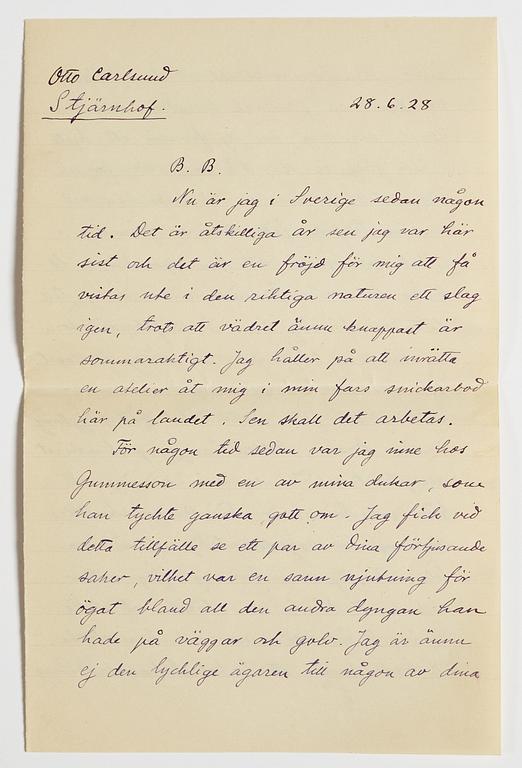 Otto Carlsund
Stjärnhof.
28.6.28
B. B.
Nu är jag i Sverige sedan någon
tid. Det är åtskilliga år sen jag var här
sist och det är en fröjd för mig att få
vistas ute i den riktiga naturen ett slag
igen, trots att vädret ännu knappast är
sommaraktigt. Jag håller på att inrätta
en atelier åt mig i min fars snickarbod
här på landet. Sen skall det arbetas.
För någon tid sedan var jag inne hos
Gummesson med en av mina dukar, som
han tyckte ganska gott om. Jag fick vid
detta tillfälle se ett par av Dina förtjusande
saker, vilket var en sann njutning för
ögat bland all den andra dyngan han
hade på väggar och golv. Jag är ännu
ej den lycklige ägaren till någon av dina